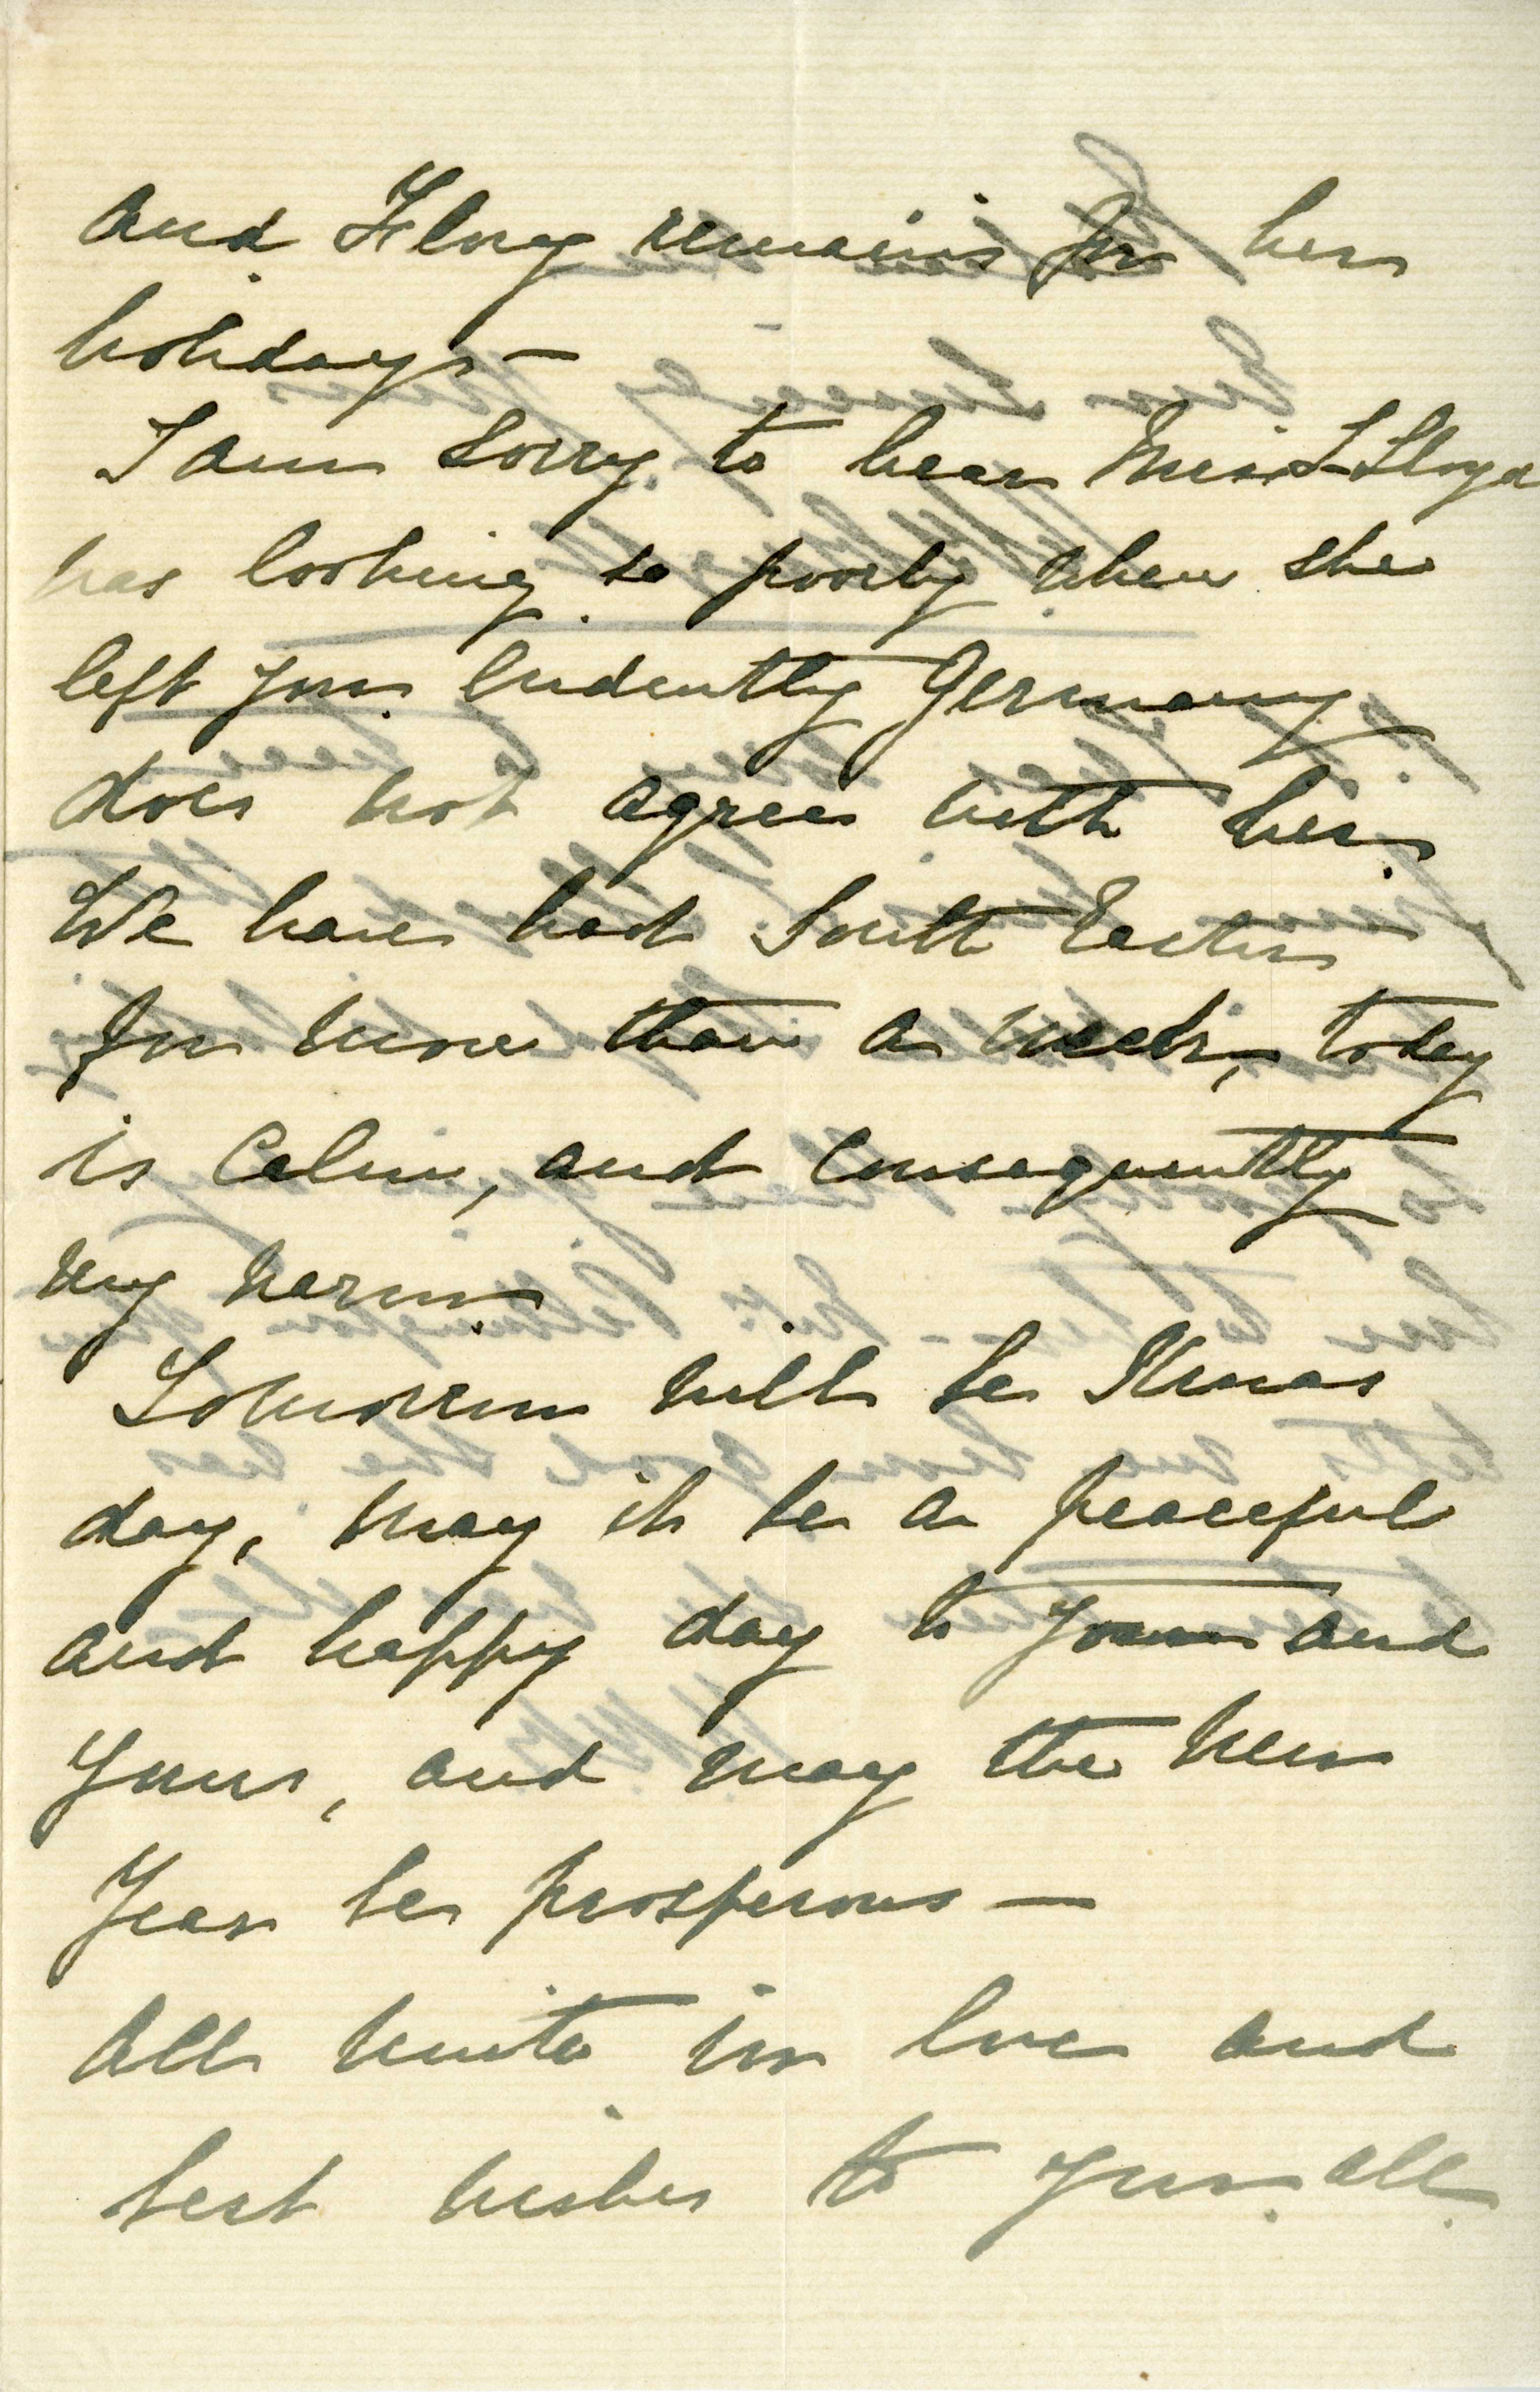 and Flory remains for her
holidays —
I am sorry to hear Mrs L-Lloyd
was looking so poorly when she
left you. Evidently Germany
does not agree with her.
We have had South Easters
for more than a week, today
is calm, and consequently
very warm.
Tomorrow will be Xmas
day, may it be a peaceful
and happy day to you and
yours, and may the New
Year be prosperous —
All unite in love and
best wishes to you all.